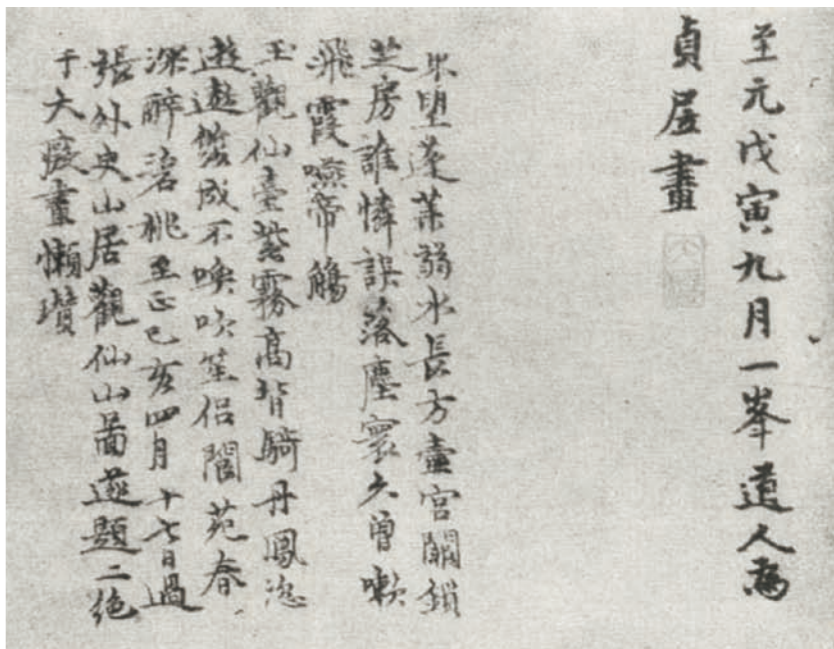 至元戊寅九月一峯道人為
貞居畫
東望蓬萊弱水長方壺宮闕鎖
芝房誰憐誤落塵寰久曾嗽
飛霞嚥帝觴
玉觀仙臺紫霧高背騎丹鳳恣
遊遨雙成不喚吹笙侶閬苑春
深醉碧桃至正己亥四月十七日過
張外史山居觀仙山啚遂題二絶
于大癡畫懶瓚